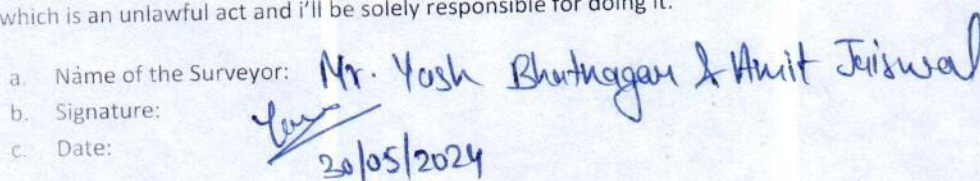 which is an unlawful act and i'll be solely responsible for doing it.
a. Name of the Surveyor: Mr. Yash Bhatnagar & Amit Jaiswal
b. Signature: Yash
c. Date: 30/05/2024